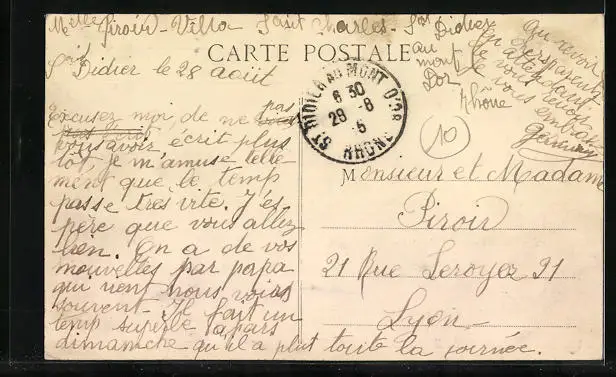 Melle Piroir - Villa Saint Charles - St Didier
au
mont
Dor
Rhône
CARTE POSTALE
St Didier le 28 août
Excusez moi de ne pas
vous avoir écrit plus
tôt, je m'amuse telle-
ment que le temp
passe très vite. J'es-
père que vous allez
bien. On a de vos
nouvelles par papa
qui vent nous voir
souvent - Il fait un
temp superbe à pars
dimanche qu'il a plut toute la journée.
Au revoir
en attendant
de vous revoir
je vous
embrasse
ST DIDIER AU MONT D'OR
6 30
28 - 8
5
RHÔNE
10
Monsieur et Madame
Piroir
21 Rue Leroyer 21
Lyon